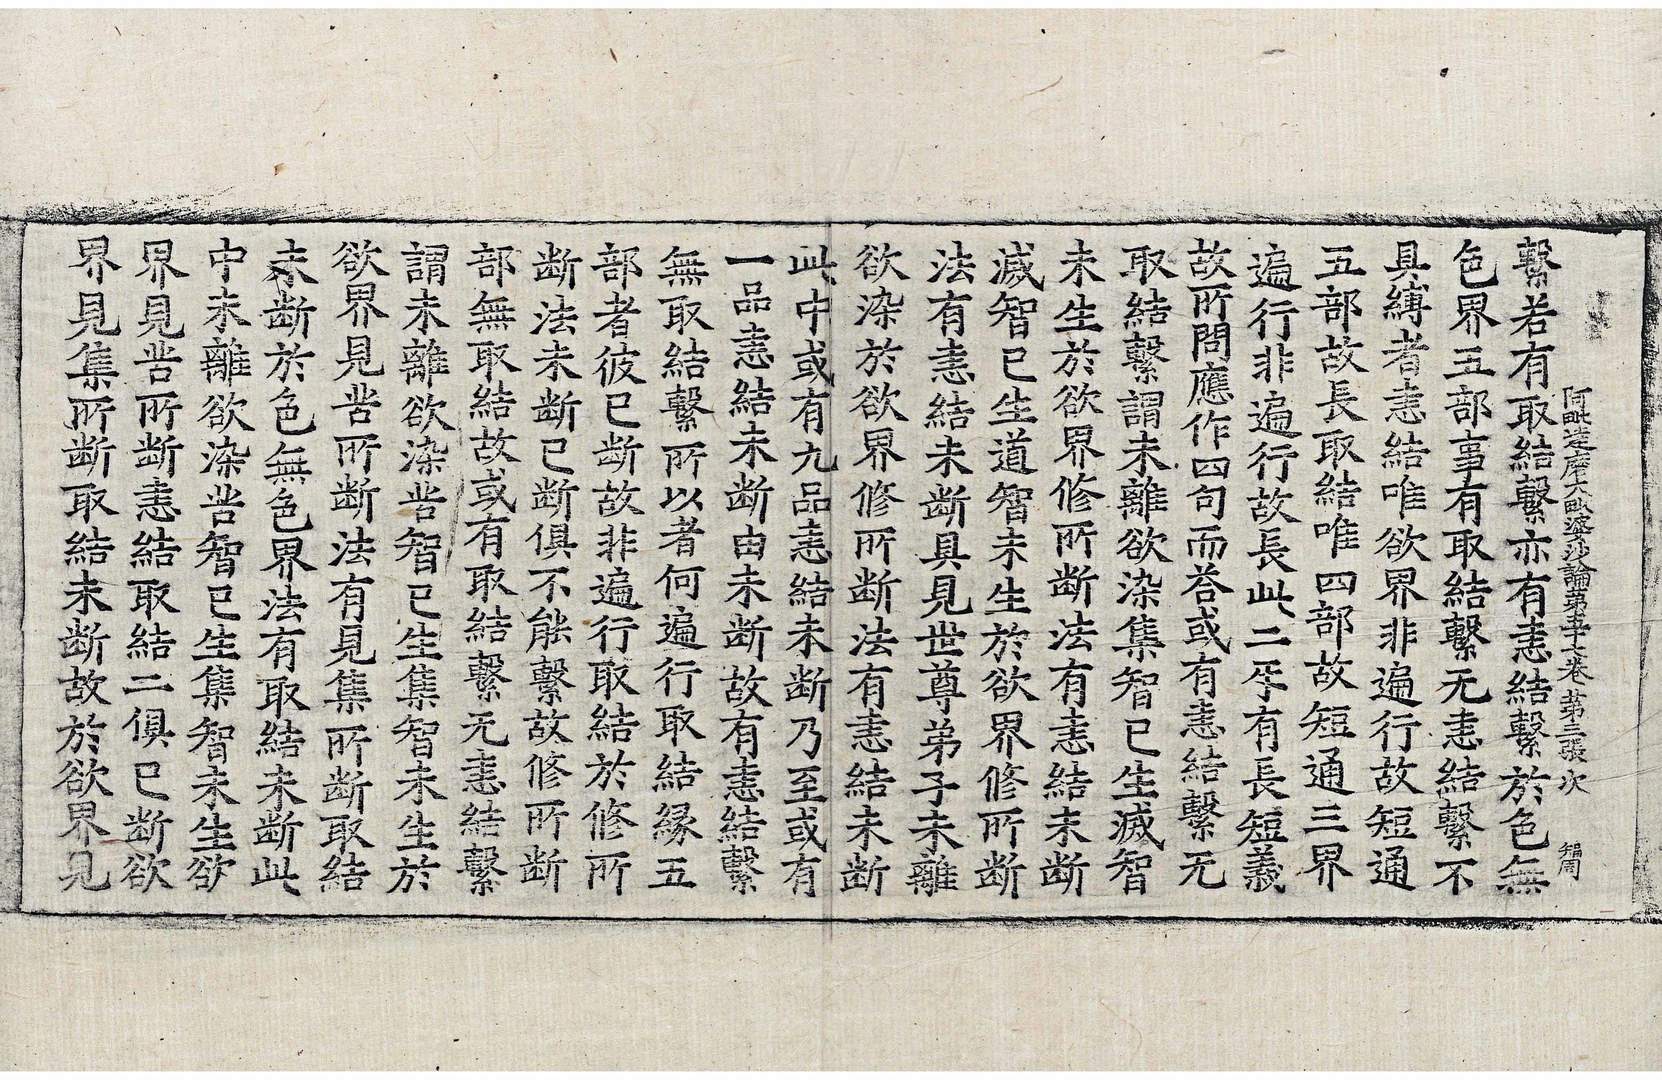 阿毗達磨大毗婆沙論第五十七卷 第三張 次
繫若有取結繫亦有恚結繫於色無
色界五部事有取結繫无恚結繫不
具縛者恚結唯欲界非遍行故短通
五部故長取結唯四部故短通三界
遍行非遍行故長此二互有長短義
故所問應作四句而荅或有恚結繫无
取結繫謂未離欲染集智已生滅智
未生於欲界修所断法有恚結未断
滅智已生道智未生於欲界修所断
法有恚結未断具見世尊弟子未離
欲染於欲界修所断法有恚結未断
此中或有九品恚結未断乃至或有
一品恚結未断由未断故有恚結繫
無取結繫所以者何遍行取結緣五
部者彼已断故非遍行取結於修所
断法未断已断俱不能繫故修所断
部無取結故或有取結繫无恚結繫
謂未離欲染苦智已生集智未生於
欲界見苦所断法有見集所断取結
未断於色無色界法有取結未断此
中未離欲染苦智已生集智未生欲
界見苦所断恚結取結二俱已断欲
界見集所断取結未断故於欲界見